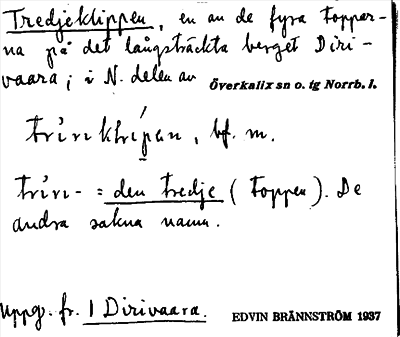 Tredjeklippen, en av de fyra toppar-
na på det långsträckta berget Diri-
vaara; i N. delen av
Överkalix sn o. tg Norrb. l.
bf. m.
= den tredje (toppen). De
andra sakna namn.
Uppg. fr. 1 Dirivaara.
EDVIN BRÄNNSTRÖM 1937